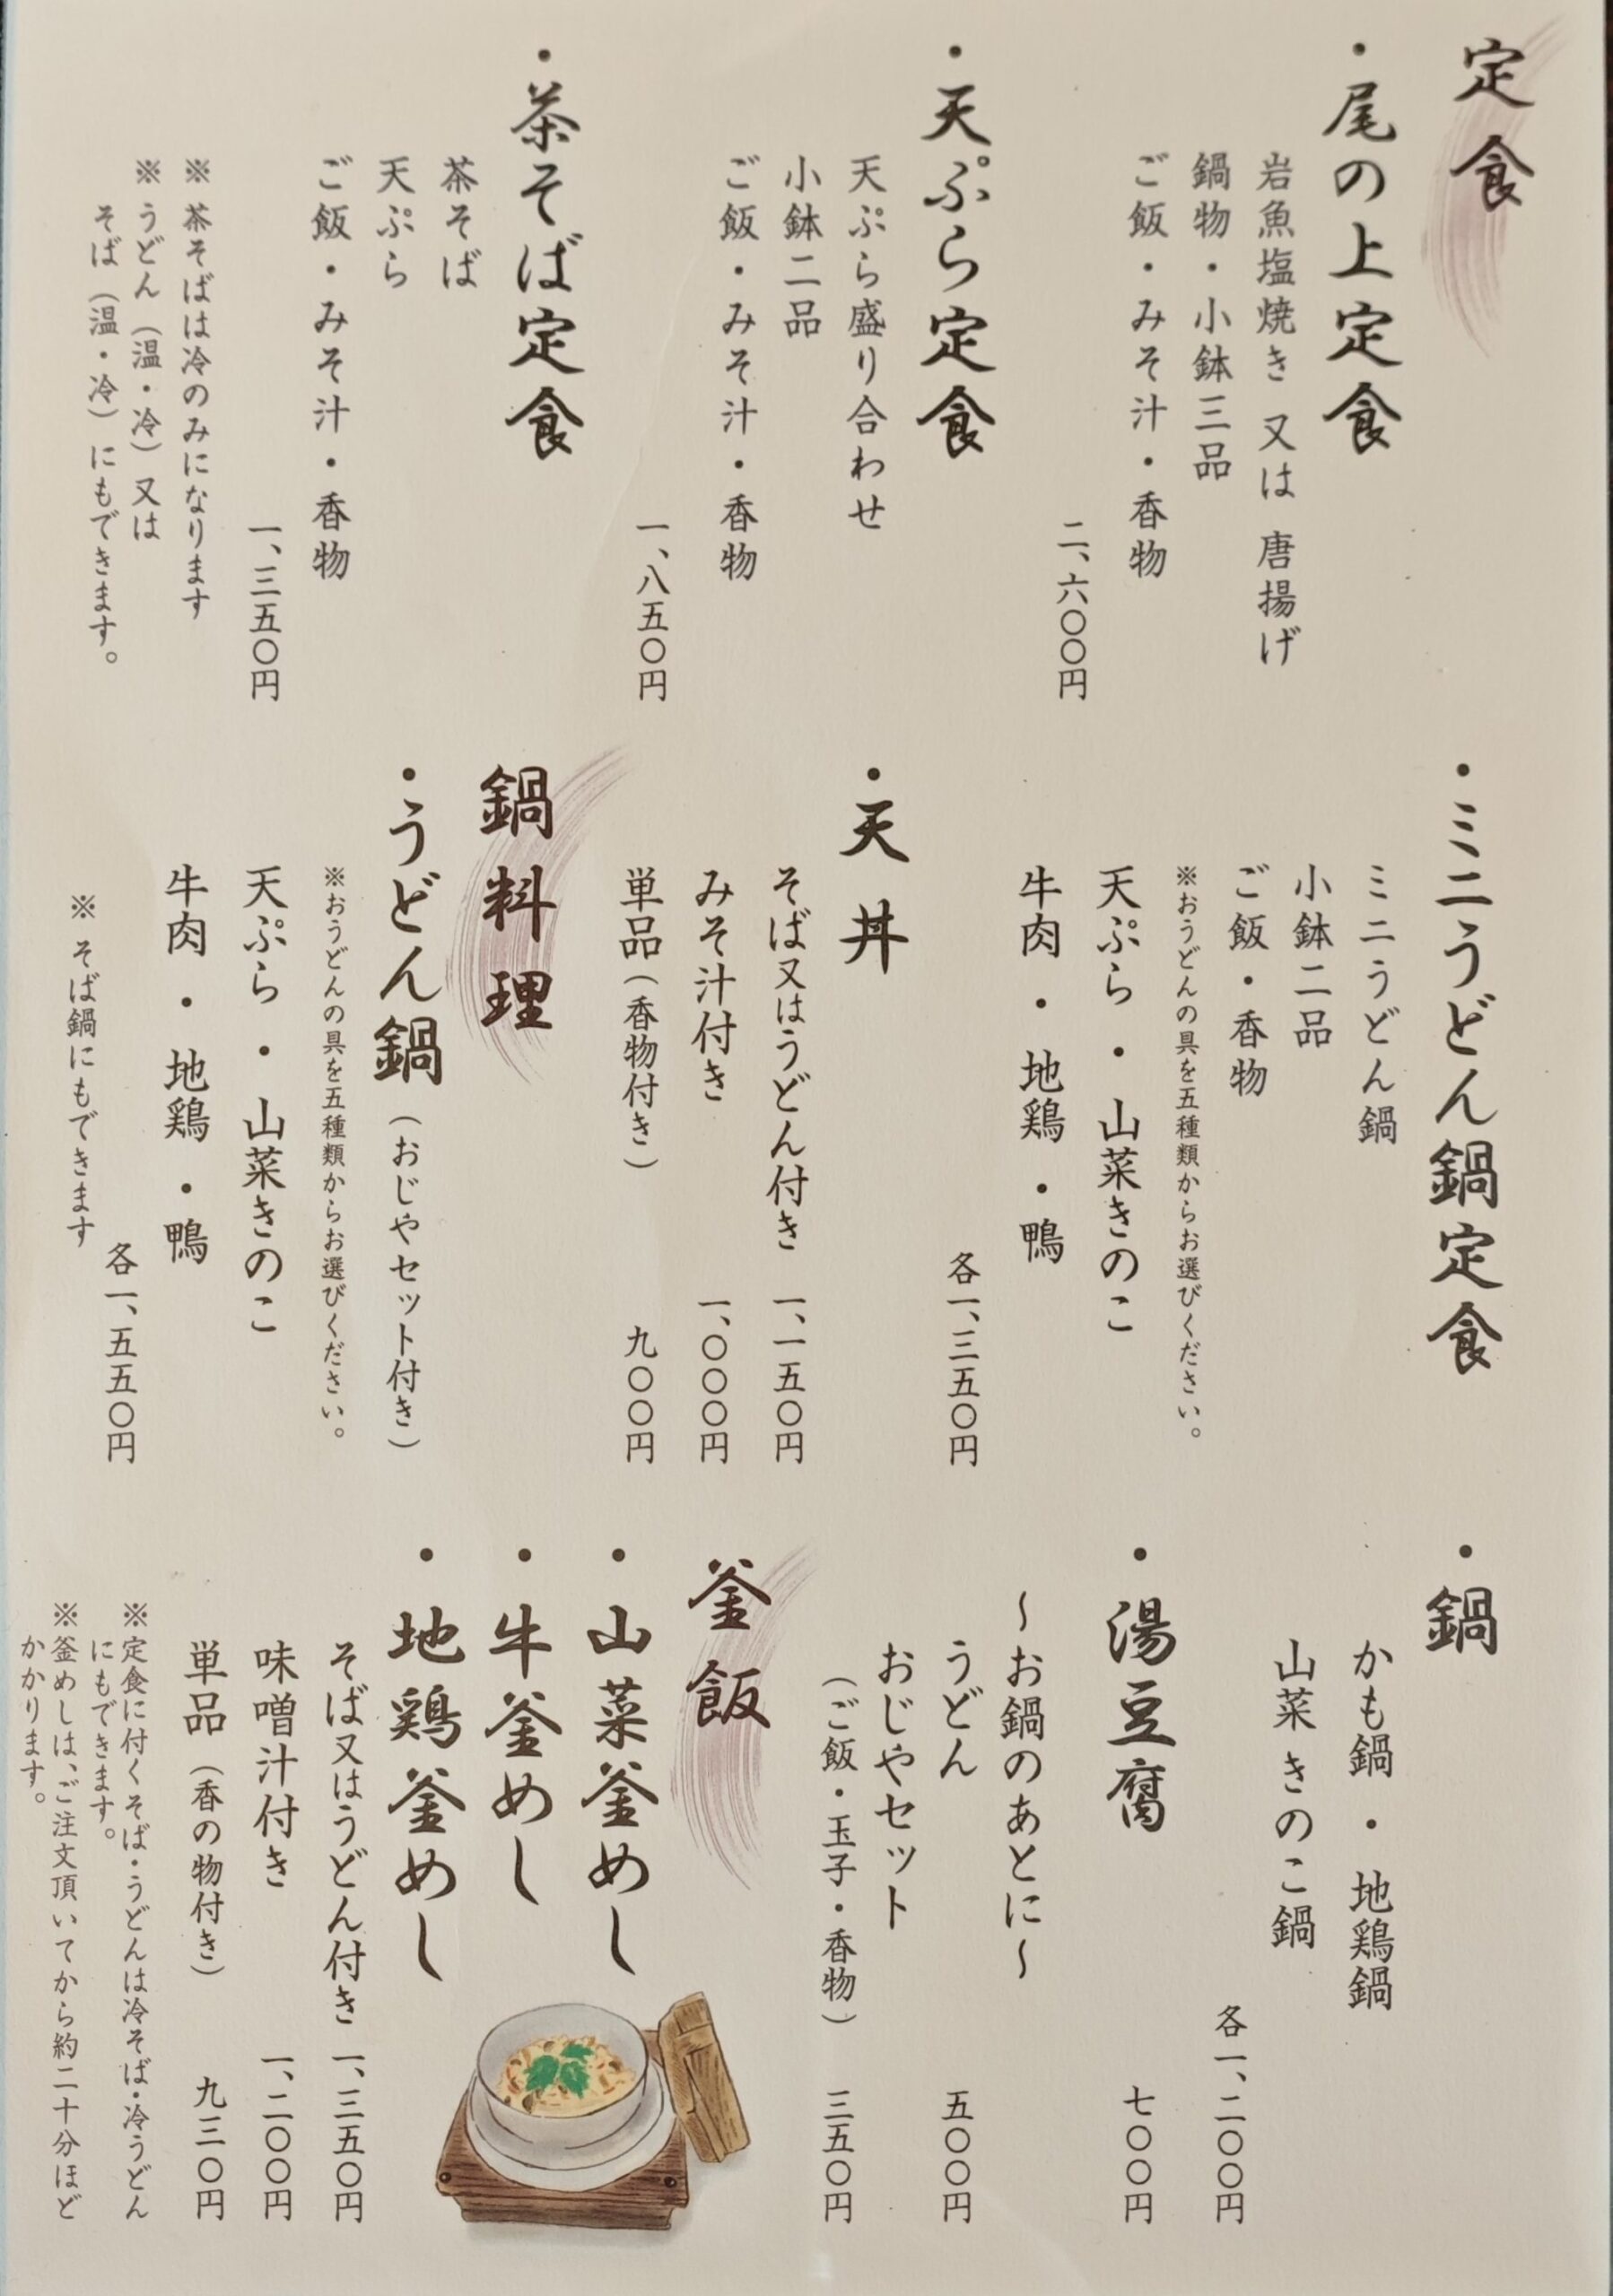 定食
・尾の上定食
岩魚塩焼き 又は 唐揚げ
鍋物・小鉢三品
ご飯・みそ汁・香物
二、六〇〇円
・天ぷら定食
天ぷら盛り合わせ
小鉢二品
ご飯・みそ汁・香物
一、八五〇円
・茶そば定食
茶そば
天ぷら
ご飯・みそ汁・香物
一、三五〇円
※茶そばは冷のみになります
※うどん（温・冷）又は
そば（温・冷）にもできます。
・ミニうどん鍋定食
ミニうどん鍋
小鉢二品
ご飯・香物
※おうどんの具を五種類からお選びください。
天ぷら・山菜きのこ
牛肉・地鶏・鴨
各一、三五〇円
・天丼
そば又はうどん付き 一、一五〇円
みそ汁付き 一、〇〇〇円
単品（香物付き） 九〇〇円
鍋料理
・うどん鍋（おじやセット付き）
※おうどんの具を五種類からお選びください。
天ぷら・山菜きのこ
牛肉・地鶏・鴨
各一、五五〇円
※そば鍋にもできます
・鍋
かも鍋・地鶏鍋
山菜きのこ鍋
各一、二〇〇円
・湯豆腐
七〇〇円
〜お鍋のあとに〜
うどん 五〇〇円
おじやセット
（ご飯・玉子・香物） 三五〇円
釜飯
・山菜釜めし
・牛釜めし
・地鶏釜めし
そば又はうどん付き 一、三五〇円
味噌汁付き 一、二〇〇円
単品（香の物付き） 九三〇円
※定食に付くそば・うどんは冷そば・冷うどん
にもできます。
※釜めしは、ご注文頂いてから約二十分ほど
かかります。